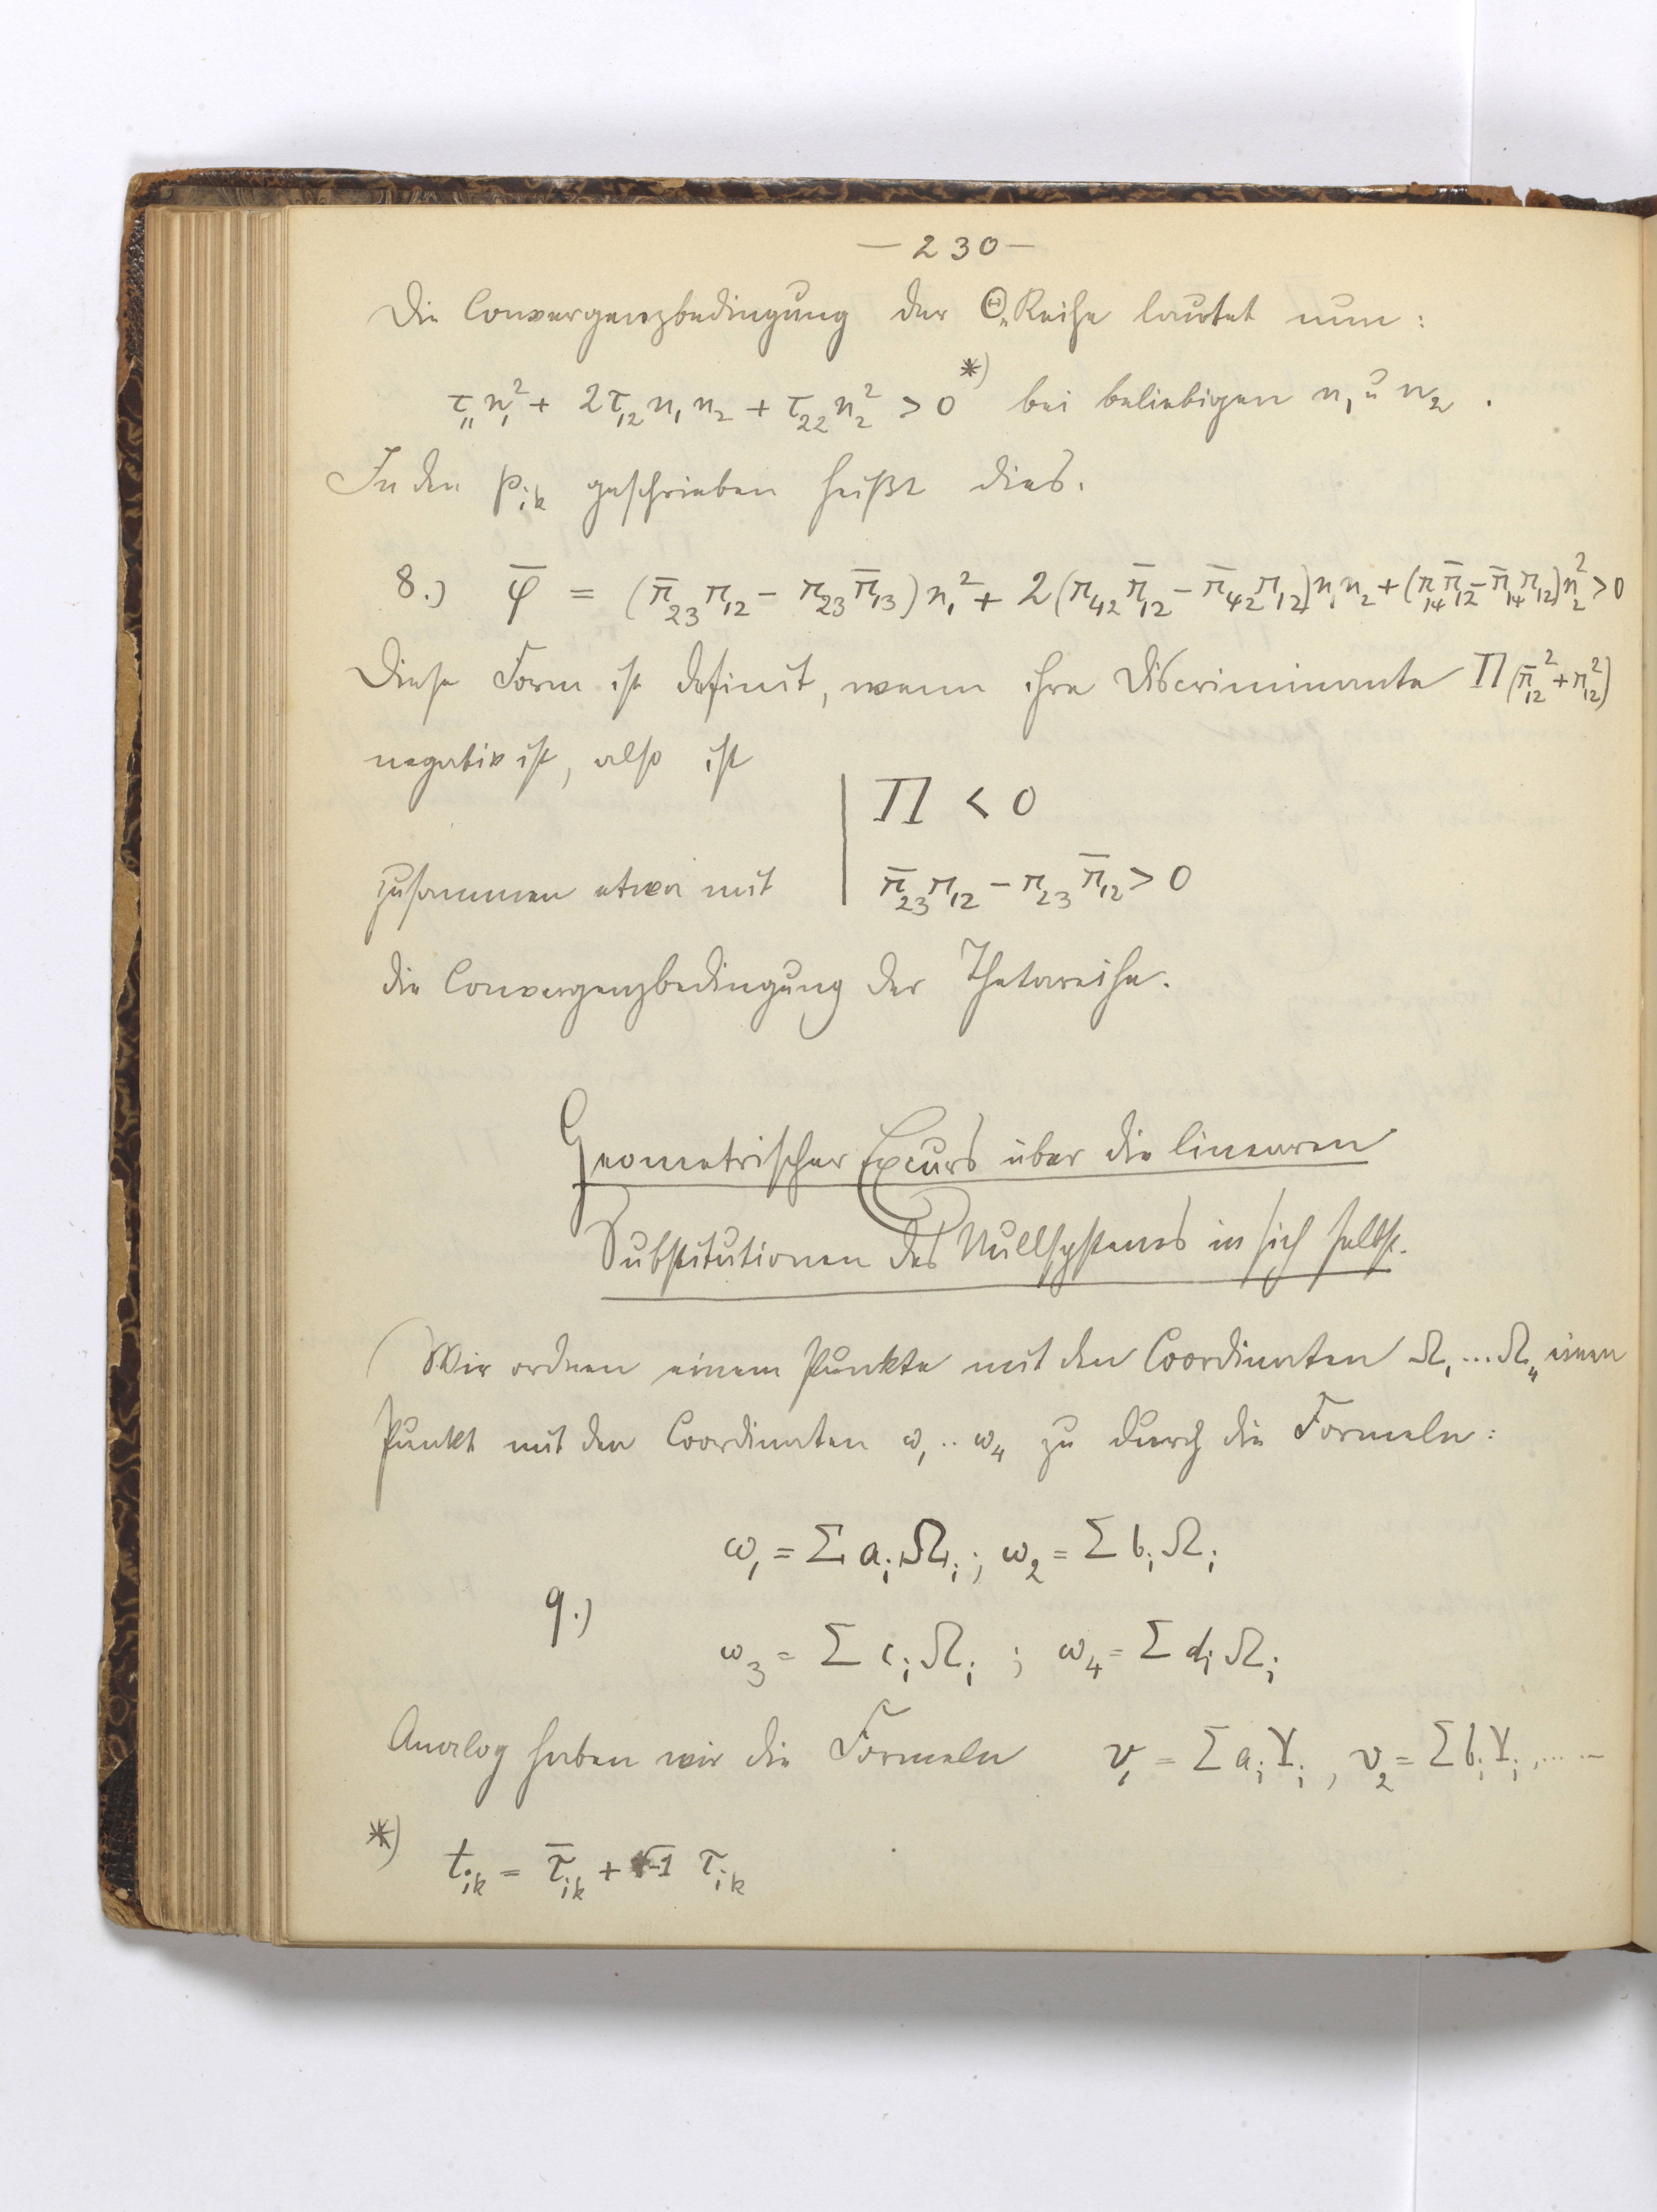 — 230 —
Die Convergenzbedingung der Θ„Reihe lautet nun:
τ₁₁n₁² + 2τ₁₂n₁n₂ + τ₂₂n₂² > 0 *) bei beliebigen n₁ u n₂.
In den p_ik geschrieben heißt dies.
8.) φ̄ = (π̄₂₃π₁₂ − π₂₃π̄₁₃)n₁² + 2(π₄₂π̄₁₂ − π̄₄₂π₁₂)n₁n₂ + (π₁₄π̄₁₂ − π̄₁₄π₁₂)n₂² > 0
Diese Form ist definit, wenn ihre Discriminante Π(π̄₁₂² + π₁₂²)
negativ ist, also ist
Π < 0
zusammen etwa mit π̄₂₃π₁₂ − π₂₃π̄₁₂ > 0
die Convergenzbedingung der Thetareihe.
Geometrischer Excurs über die linearen
Substitutionen des Nullsystems in sich selbst.
Wir ordnen einem Punkte mit den Coordinaten Ω₁...Ω₄ einen
Punkt mit den Coordinaten ω₁..ω₄ zu durch die Formeln:
ω₁ = Σ a_i Ω_i; ω₂ = Σ b_i Ω_i
9.)
ω₃ = Σ c_i Ω_i ; ω₄ = Σ d_i Ω_i
Analog haben wir die Formeln v₁ = Σ a_i Y_i, v₂ = Σ b_i Y_i, .....
*) t_ik = τ̄_ik + √-1 τ_ik